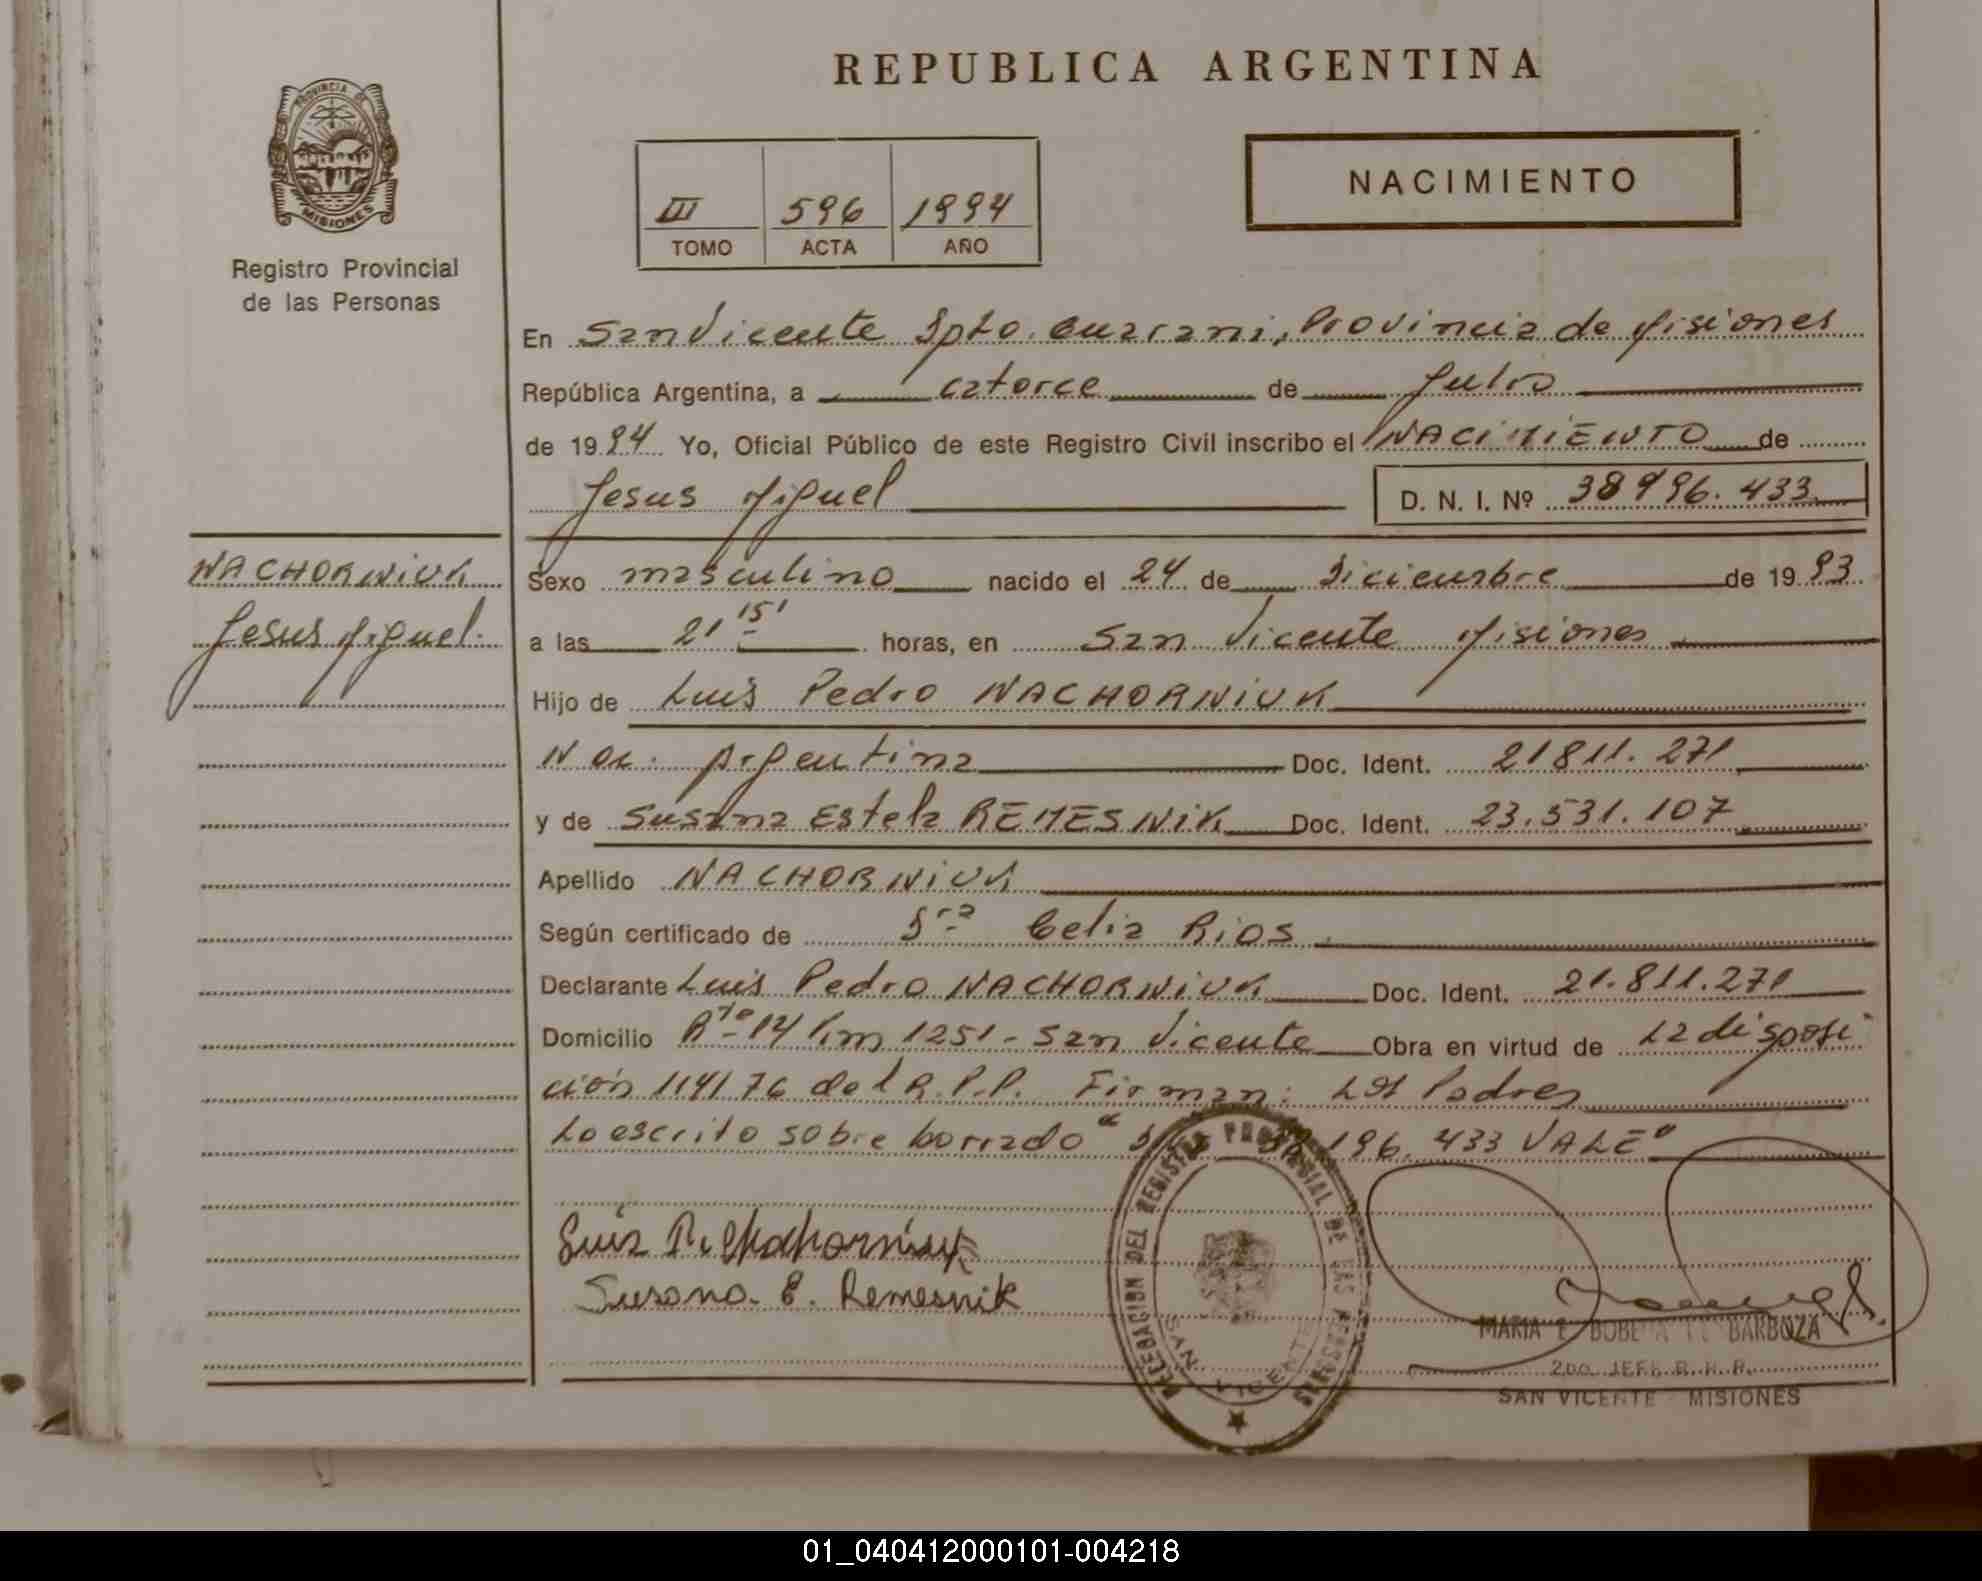 REPUBLICA ARGENTINA
PROVINCIA DE
MISIONES
Registro Provincial
de las Personas
III 596 1994
TOMO ACTA AÑO
NACIMIENTO
En San Vicente Dpto. Guarani, Provincia de Misiones
República Argentina, a catorce de Julio
de 1994 Yo, Oficial Público de este Registro Civil inscribo el NACIMIENTO de
Jesus Miguel D. N. I. Nº 38.196.433
NACHORNIUK
Jesus Miguel.
Sexo masculino nacido el 24 de Diciembre de 1993
a las 21 15' horas, en San Vicente Misiones
Hijo de Luis Pedro NACHORNIUK
Nac. Argentina Doc. Ident. 21811.271
y de Susana Estela REMESNIK Doc. Ident. 23.531.107
Apellido NACHORNIUK
Según certificado de Dra Celia Rios
Declarante Luis Pedro NACHORNIUK Doc. Ident. 21.811.271
Domicilio Rta 14 Km 1251 - San Vicente Obra en virtud de la disposi
ción 114/76 del R.P.P. Firman: Los Padres
Lo escrito sobre borrado " 196.433 VALE"
Luis P. Nachorniuk
Susana. E. Remesnik
DELEGACION DEL REGISTRO PROVINCIAL DE LAS PERSONAS
SAN VICENTE
MARIA E. BARBOZA
2do. JEFE R.
SAN VICENTE - MISIONES
01_040412000101-004218